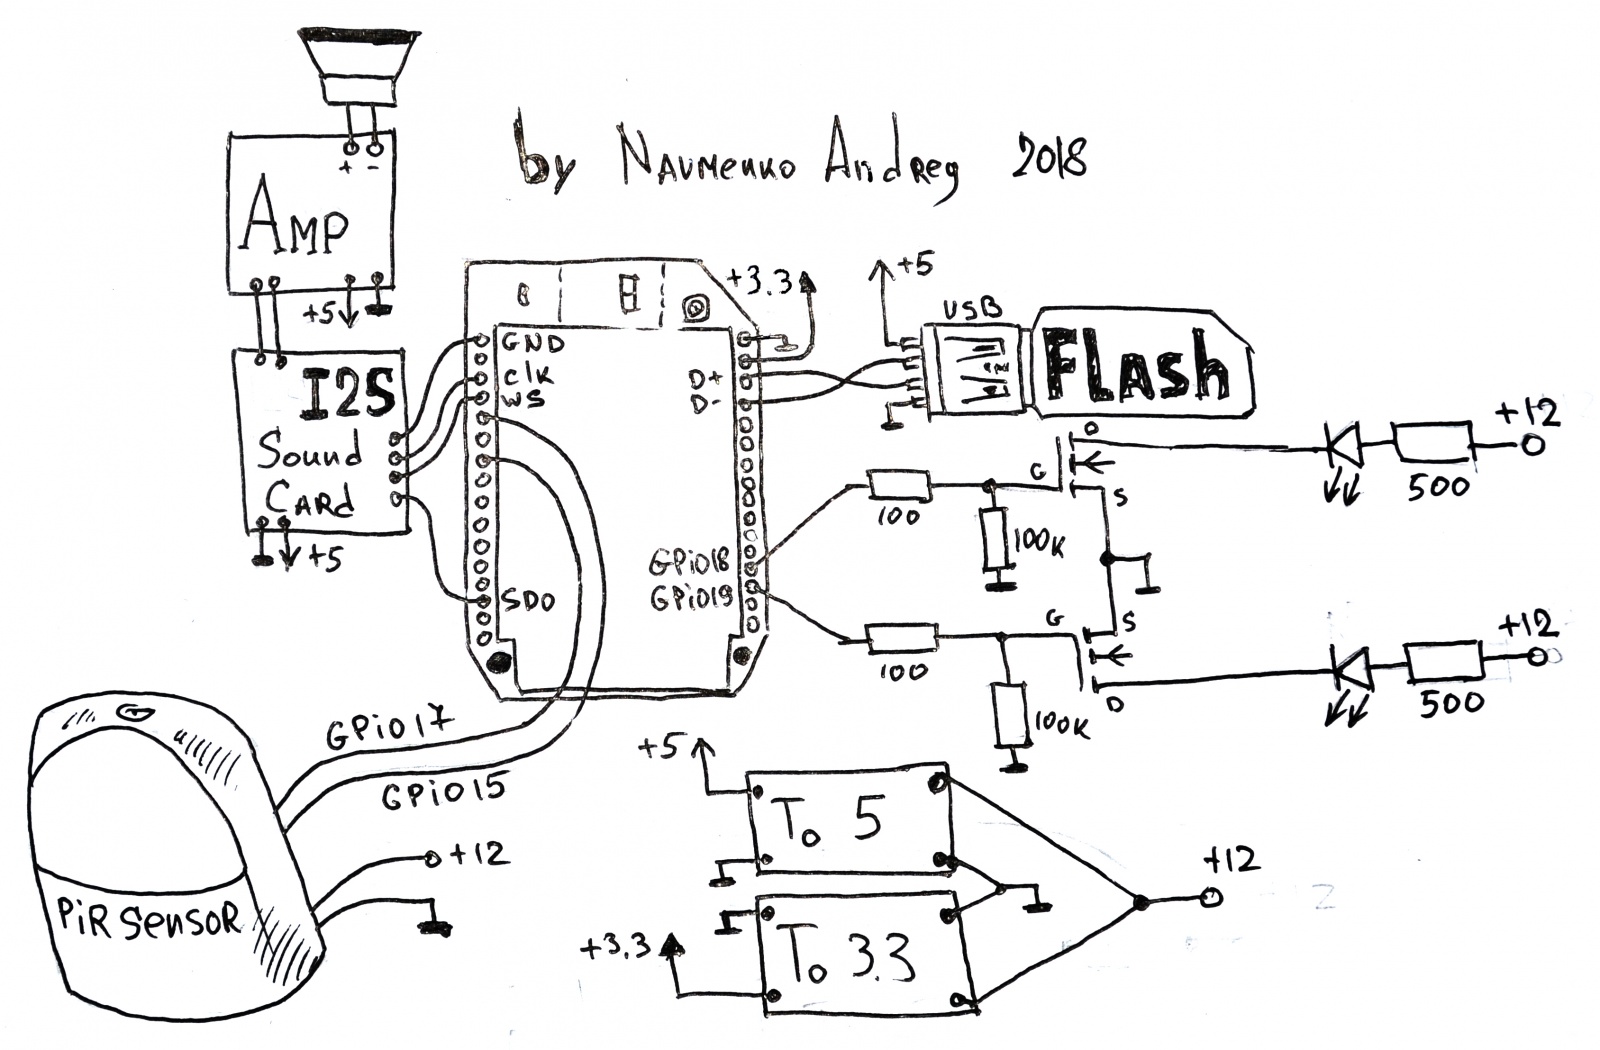 by Naumenko Andrey 2018
+ -
AMP
+5
I2S
Sound
CARd
+5
GND
ClK
WS
SDO
+3.3
D+
D-
GPiO18
GPiO19
+5
USB
FLAsh
100
100K
G
D
S
500
+12
100
100K
G
S
D
500
+12
GPiO17
GPiO15
+12
PiR SensoR
+5
To 5
+3.3
To 3.3
+12